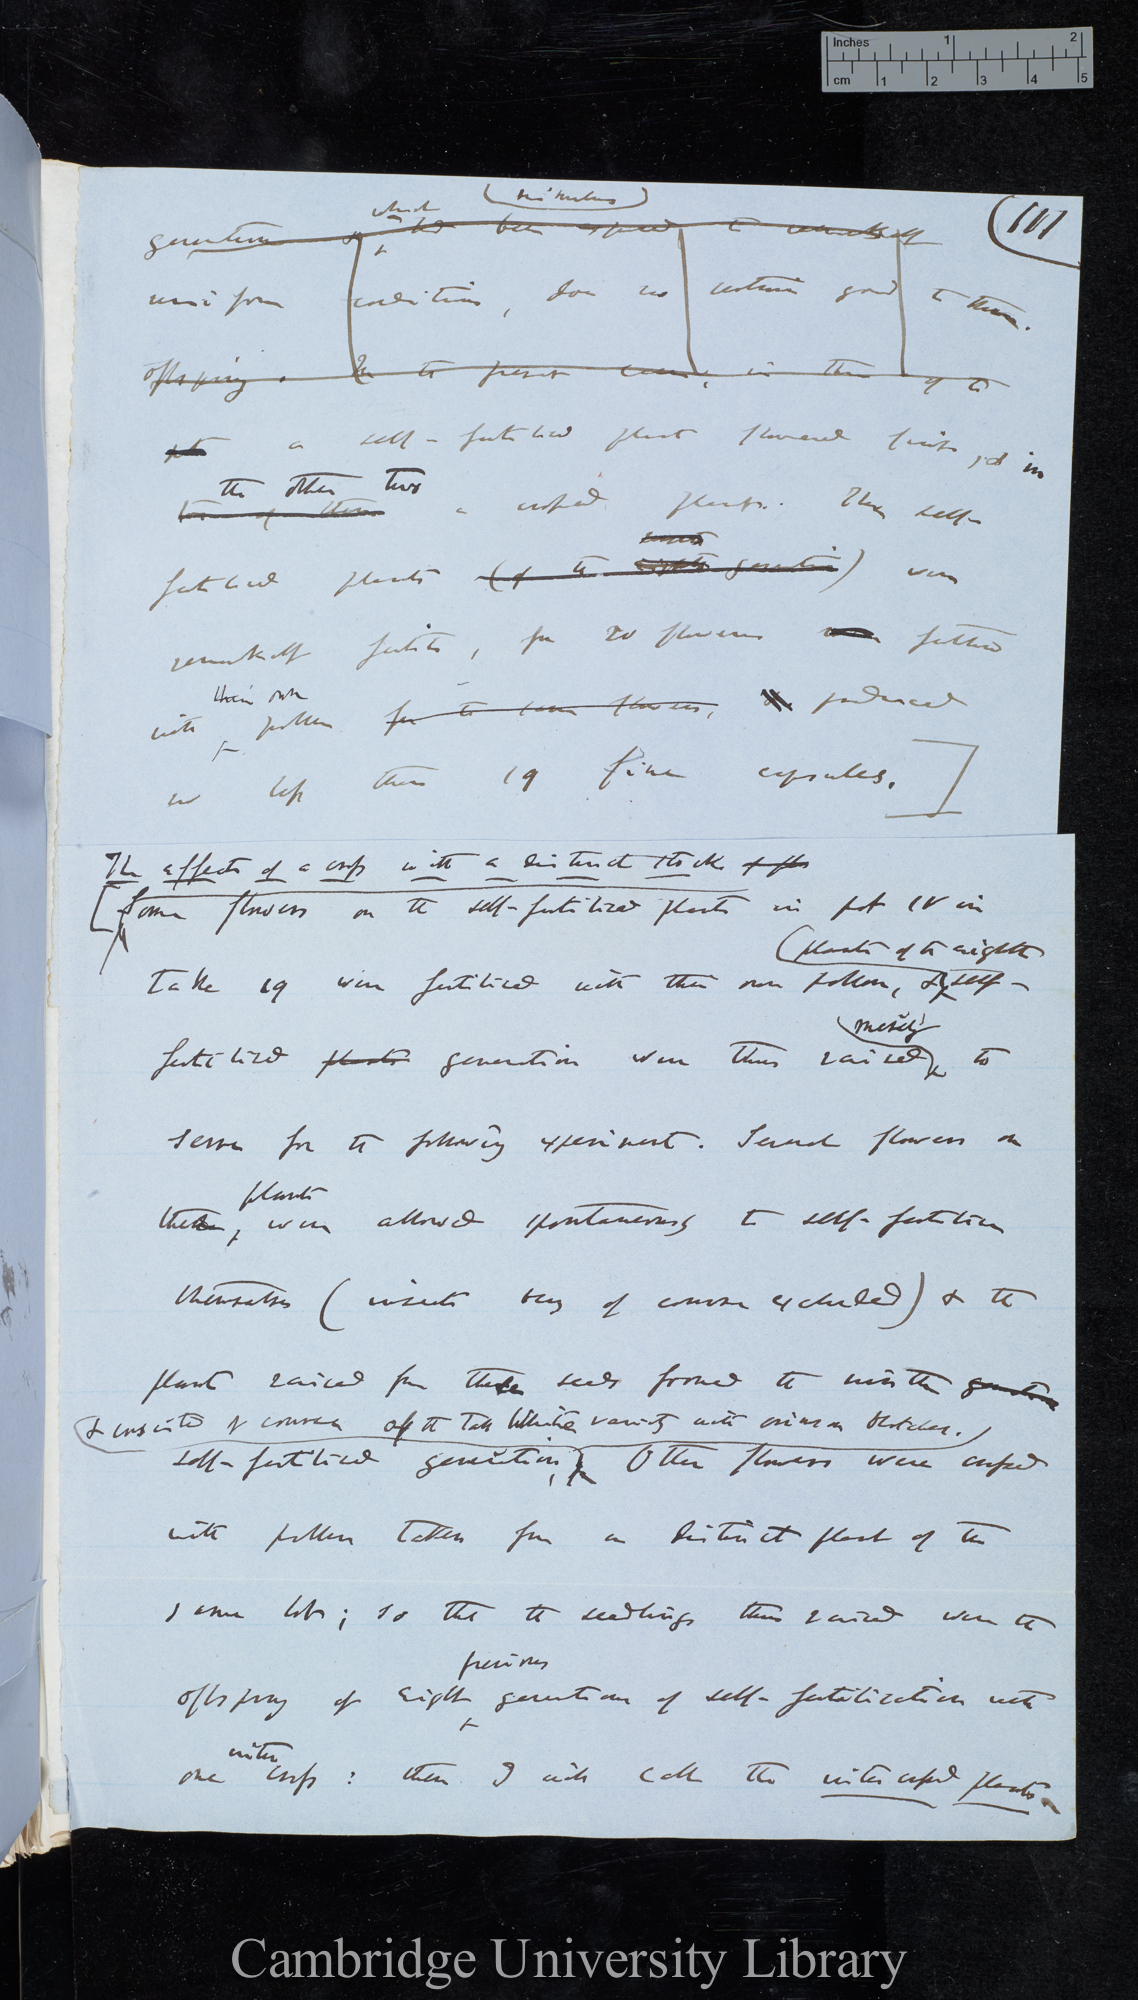 Inches 1 2
cm 1 2 3 4 5
(111
which (similar)
generations had been exposed to remarkably
uniform conditions, does no certain good to them.
offspring. In the present case, in three of the
pots a self-fertilised plant flowered first, & in
the other two
a crossed plant. These self-
fertilised plants (of the eighth generation) were
remarkably fertile, for 20 flowers fertilised
their own
with pollen produced
no less than 19 fine capsules.]
The effects of a cross with a distinct stock
[Some flowers on the self-fertilised plants in pot IV in
(plants of the eighth
Table 19 were fertilised with their own pollen, & self-
(merely
fertilised plants generation were thus raised, to
serve for the following experiment. Several flowers on
plants
these, were allowed spontaneously to self-fertilise
themselves (insects being of course excluded) & the
plants raised from these seeds formed the ninth generation
& consisted of course of the tall white variety with crimson blotches.)
self-fertilised generation; Other flowers were crossed
with pollen taken from a distinct plant of the
same lot; so that the seedlings thus raised were the
previous
offspring of eight generations of self-fertilisation with
inter
one cross: these I will call the intercrossed plants.
Cambridge University Library